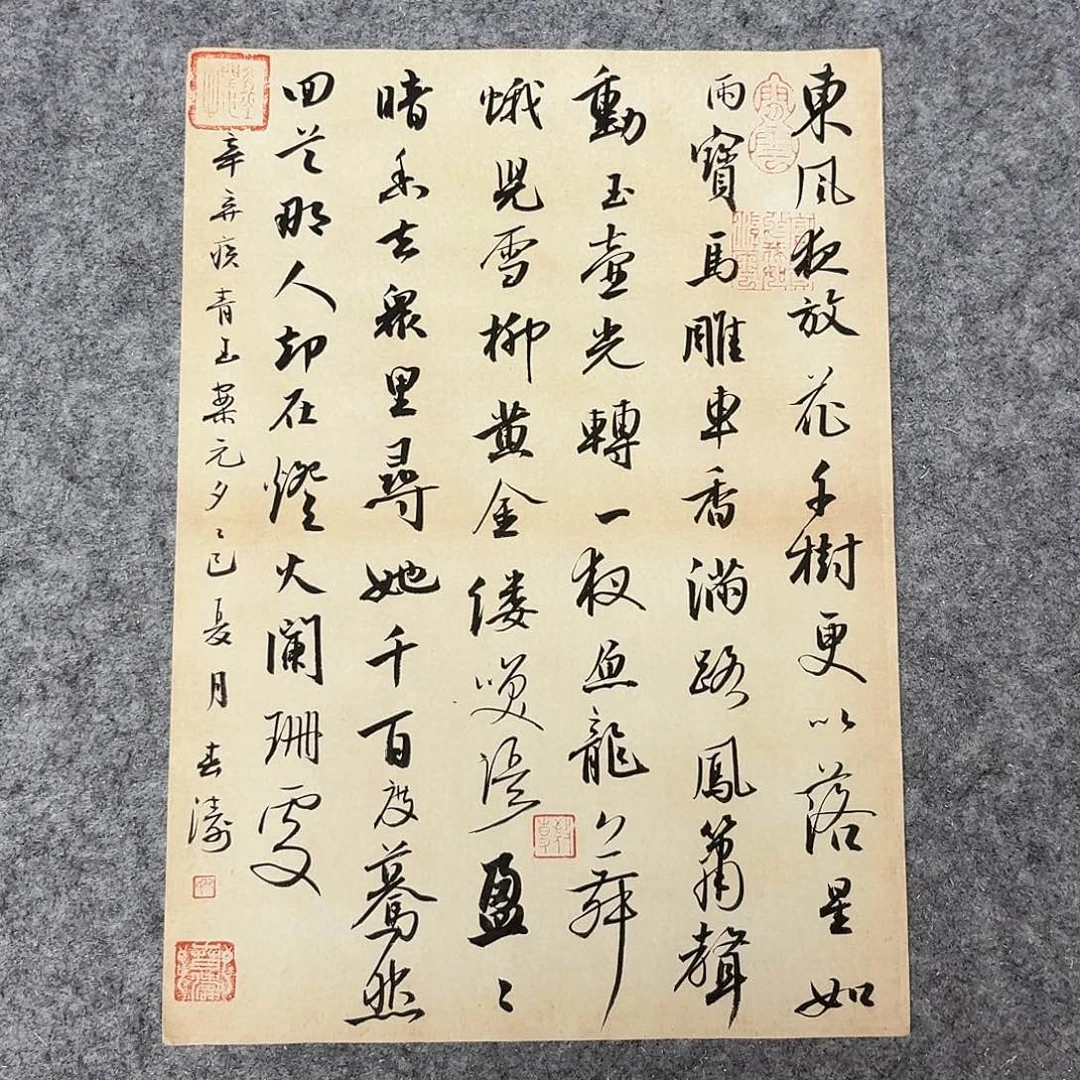 東風夜放花千樹更以落星如
雨寶馬雕車香滿路鳳簫聲
動玉壺光轉一夜魚龍舞
蛾兒雪柳黃金縷笑語盈〻
暗香去眾里尋她千百度驀然
回首那人却在燈火闌珊處
辛弃疾青玉案元夕乙巳夏月春濤